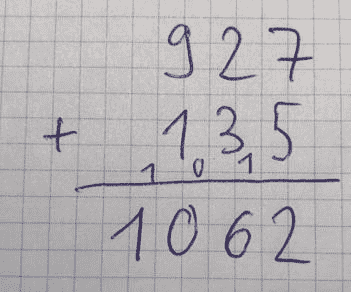 927
+ 135
1 0 1
1062